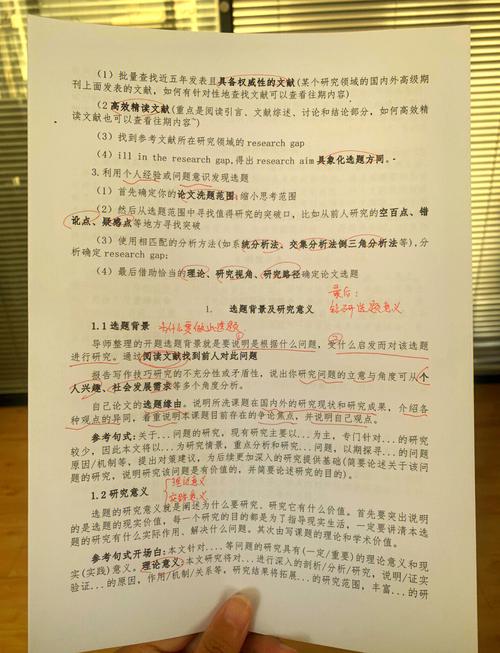 （1）批量查找近五年发表且具备权威性的文献(某个研究领域的国内外高级期
刊上面发表的文献，如何有针对性地查找文献可以查看往期内容)
（2 高效精读文献(重点是阅读引言、文献综述、讨论和结论部分，如何高效精
读文献也可以查看往期内容）
（3）找到参考文献所在研究领域的research gap
（4）ill in the research gap,得出research aim具象化选题方间。
3.利用个人经验或问题意识发现选题
（1）首先确定你的论文洗题范围:缩小思考范围
（2）然后从选题范围中寻找值得研究的突破口，比如从前人研究的空百点、错
论点、疑惑点等地方寻找突破
（3）使用相匹配的分析方法(如系统分析法、交集分析法倒三角分析法等),分
析确定research gap:
（4）最后借助恰当的理论、研究视角、研究路径确定论文选题
最后:
1. 选题背景及研究意义
1.1 选题背景 为什么要做此选题
导师整理的开题选题背景就是要说明是根据什么问题，受什么启发而对该选题
进行研究。通过阅读文献找到前人对此问题
报告写作技巧研究的不充分性或矛盾性，说出你研究问题的立意与角度可从个
人兴趣、社会发展需求等多个角度分析。
自己论文的选题缘由。说明所洗课题在国内外的研究现状和研究成果，介绍各
种观点的异同，着重说明本课题目前存在的争论焦点，并说明自己观点。
参考句式:关于...问题的研究，现有研究主要以...为主，专门针对...的研究
较少，因此本文将以...为研究情景，重点分析和研究...问题，以期探寻...的问题
原因/机制等，提出对策建议，为后续更加深入的研究提供基础(简要论述关于该问
题的研究，说明研究该问题是有价值的，并简要论述研究的目的)。
1.2 研究意义 理论意义
实践意义
选题的研究意义就是阐述为什么要研究、研究它有什么价值。首先要突出说明
的是选题的现实价值，每一个研究的目的都是为了指导现实生活，一定要讲清本选
题的研究有什么实际作用、解决什么问题。其次由写课题的理论和学术价值。
参考句式开场白:本文针对....等问题的研究具有(一定/重要)的理论意义和现
实(实践)意义。理论意义:本文研究将对...进行深入的剖析/分析/研究，说明/证实
验证...的原因，作用/机制/关系等，研究结果将拓展...的研究范围，丰富...的研